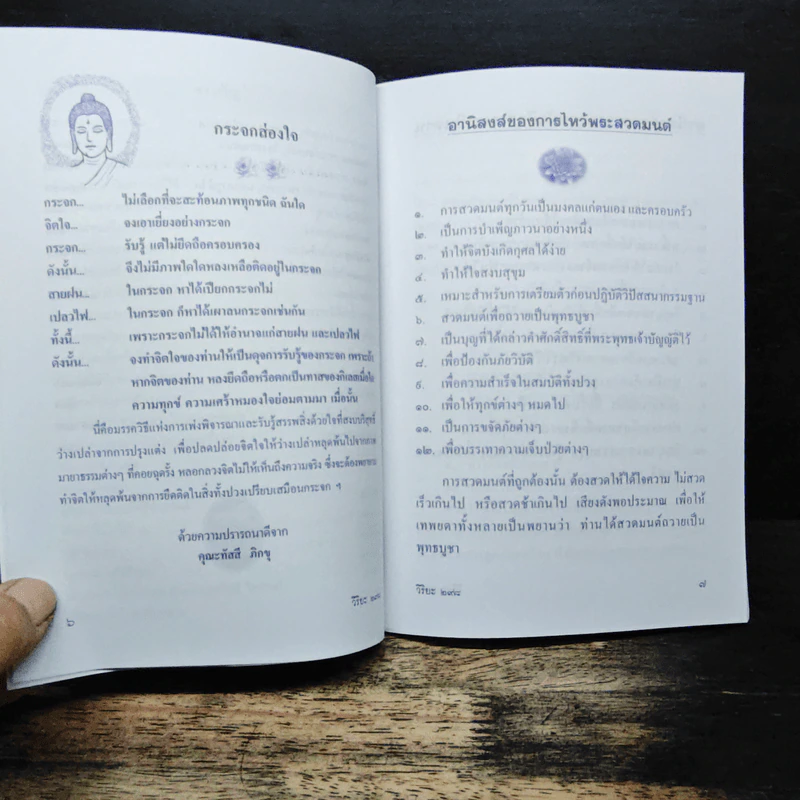 กระจกส่องใจ
กระจก... ไม่เลือกที่จะสะท้อนภาพทุกชนิด ฉันใด
จิตใจ... จงเอาเยี่ยงอย่างกระจก
กระจก... รับรู้ แต่ไม่ยึดถือครอบครอง
ดังนั้น... จึงไม่มีภาพใดใดหลงเหลือติดอยู่ในกระจก
สายฝน... ในกระจก หาได้เปียกกระจกไม่
เปลวไฟ... ในกระจก ก็หาได้เผาลนกระจกเช่นกัน
ทั้งนี้... เพราะกระจกไม่ได้ให้อำนาจแก่สายฝน และเปลวไฟ
ดังนั้น... จงทำจิตใจของท่านให้เป็นดุจการรับรู้ของกระจก
หากจิตของท่าน หลงยึดถือหรือตกเป็นทาสของกิเลสเมื่อใด
ความทุกข์ ความเศร้าหมองใจย่อมตามมา เมื่อนั้น
นี่คือมรรควิธีแห่งการเพ่งพิจารณาและรับรู้สรรพสิ่งด้วยใจที่สงบบริสุทธิ์
ว่างเปล่าจากการปรุงแต่ง เพื่อปลดปล่อยจิตใจให้ว่างเปล่าหลุดพ้นไปจาก
มายาธรรมต่างๆ ที่คอยฉุดรั้ง หลอกลวงจิตไม่ให้เห็นถึงความจริง ซึ่งจะต้อง
ทำจิตให้หลุดพ้นจากการยึดติดในสิ่งทั้งปวงเปรียบเสมือนกระจก ฯ
ด้วยความปรารถนาดีจาก
คุณะทัสสี ภิกขุ
วิริยะ
๖
อานิสงส์ของการไหว้พระสวดมนต์
๑. การสวดมนต์ทุกวันเป็นมงคลแก่ตนเอง และครอบครัว
๒. เป็นการบำเพ็ญภาวนาอย่างหนึ่ง
๓. ทำให้จิตบังเกิดกุศลได้ง่าย
๔. ทำให้ใจสงบสุขุม
๕. เหมาะสำหรับการเตรียมตัวก่อนปฏิบัติวิปัสสนากรรมฐาน
๖. สวดมนต์เพื่อถวายเป็นพุทธบูชา
๗. เป็นบุญที่ได้กล่าวคำศักดิ์สิทธิ์ที่พระพุทธเจ้าบัญญัติไว้
๘. เพื่อป้องกันภัยวิบัติ
๙. เพื่อความสำเร็จในสมบัติทั้งปวง
๑๐. เพื่อให้ทุกข์ต่างๆ หมดไป
๑๑. เป็นการขจัดภัยต่างๆ
๑๒. เพื่อบรรเทาความเจ็บป่วยต่างๆ
การสวดมนต์ที่ถูกต้องนั้น ต้องสวดให้ได้ใจความ ไม่สวด
เร็วเกินไป หรือสวดช้าเกินไป เสียงดังพอประมาณ เพื่อให้
เทพยดาทั้งหลายเป็นพยานว่า ท่านได้สวดมนต์ถวายเป็น
พุทธบูชา
วิริยะ ๒๙๘
๗